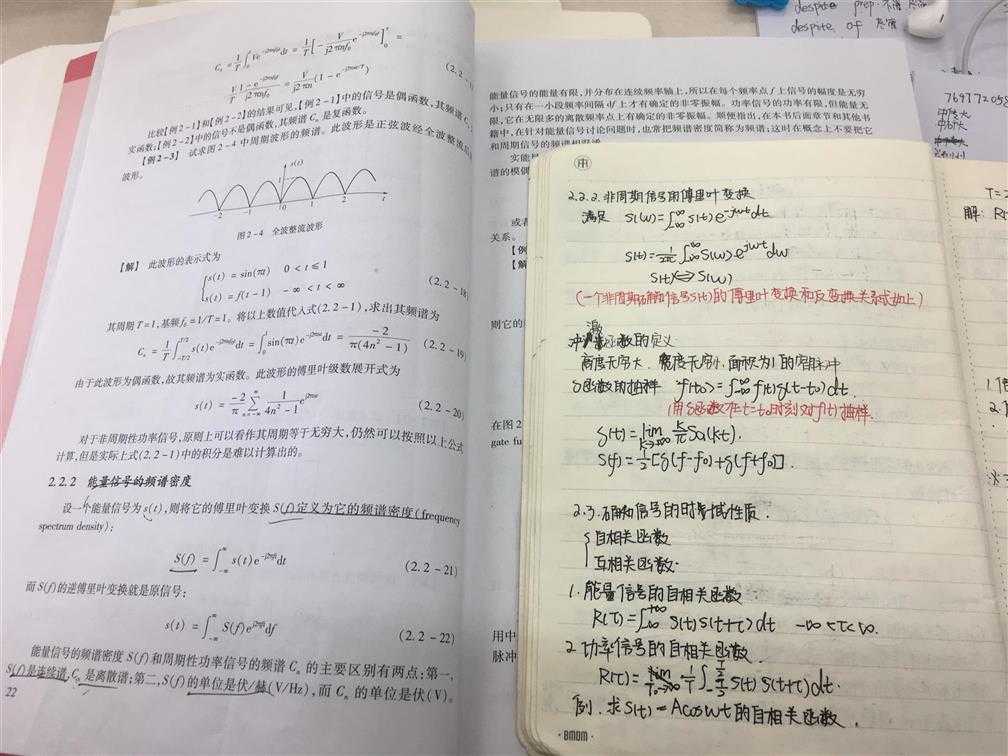 despite prep.
despite of
C_n = 1/T ∫_0^τ Ve^{-j2πnf_0t}dt = 1/T [-V/(j2πnf_0) e^{-j2πnf_0t}]_0^τ =
V/T (1-e^{-j2πnf_0τ})/(j2πnf_0) = V/(j2πn) (1-e^{-j2πnτ/T}) (2.2-
比较【例2-1】和【例2-2】的结果可见,【例2-1】中的信号是偶函数,其频谱C_n
实函数;【例2-2】中的信号不是偶函数,其频谱C_n是复函数。
【例2-3】 试求图2-4中周期波形的频谱。此波形是正弦波经全波整流后
波形。
s(t)
1
-2 -1 0 1 2 t
图2-4 全波整流波形
【解】 此波形的表示式为
s(t) = sin(πt) 0 < t ≤ 1
s(t) = f(t-1) -∞ < t < ∞ (2.2-18)
其周期T=1,基频f_0=1/T=1。将以上数值代入式(2.2-1),求出其频谱为
C_n = 1/T ∫_{-T/2}^{T/2} s(t)e^{-j2πnf_0t}dt = ∫_0^1 sin(πt)e^{-j2πnt}dt = -2/(π(4n²-1)) (2.2-19)
由于此波形为偶函数,故其频谱为实函数。此波形的傅里叶级数展开式为
s(t) = -2/π Σ_{n=-∞}^{∞} 1/(4n²-1) e^{j2πnt} (2.2-20)
对于非周期性功率信号,原则上可以看作其周期等于无穷大,仍然可以按照以上公式
计算,但是实际上式(2.2-1)中的积分是难以计算出的。
2.2.2 能量信号的频谱密度
设一个能量信号为s(t),则将它的傅里叶变换S(f)定义为它的频谱密度(frequency
spectrum density):
S(f) = ∫_{-∞}^{∞} s(t)e^{-j2πft}dt (2.2-21)
而S(f)的逆傅里叶变换就是原信号:
s(t) = ∫_{-∞}^{∞} S(f)e^{j2πft}df (2.2-22)
能量信号的频谱密度S(f)和周期性功率信号的频谱C_n的主要区别有两点:第一,
S(f)是连续谱,C_n是离散谱;第二,S(f)的单位是伏/赫(V/Hz),而C_n的单位是伏(V)。
22
能量信号的能量有限,并分布在连续频率轴上,所以在每个频率点f上信号的幅度是无穷
小;只有在一小段频率间隔df上才有确定的非零振幅。功率信号的功率有限,但能量无
限,它在无限多的离散频率点上有确定的非零振幅。顺便指出,在本书后面章节和其他书
籍中,在针对能量信号讨论问题时,也常把频谱密度简称为频谱;这时在概念上不要把它
和周期信号的频谱相混淆
实能量
谱的模偶
或者
关系。
【例
【解
则它的
在图2
gate fu
用中
脉冲
2.2.2.非周期信号的傅里叶变换
满足 S(w)=∫_{-∞}^{∞}s(t)e^{-jwt}dt
s(t)=1/2π ∫_{-∞}^{∞}S(w)e^{jwt}dw
s(t)⇔S(w)
(一个非周期确知信号s(t)的傅里叶变换和反变换关系式如上)
冲激函数的定义
高度无穷大、宽度无穷小、面积为1的窄脉冲
δ函数的抽样 f(t_0)=∫_{-∞}^{∞}f(t)δ(t-t_0)dt
(用δ函数在t=t_0时刻对f(t)抽样.
δ(t)=lim_{k→∞} k/π Sa(kt).
S(f)=1/2[δ(f-f_0)+δ(f+f_0)].
2.3.确知信号的时域性质.
自相关函数
互相关函数.
1.能量信号的自相关函数
R(τ)=∫_{-∞}^{+∞} s(t)s(t+τ)dt -∞<τ<∞.
2.功率信号的自相关函数.
R(τ)=lim_{T→∞} 1/T ∫_{-T/2}^{T/2} s(t)s(t+τ)dt.
例.求s(t)=Acoswt的自相关函数.
·8MOM·
T=
解: R
1.
2.